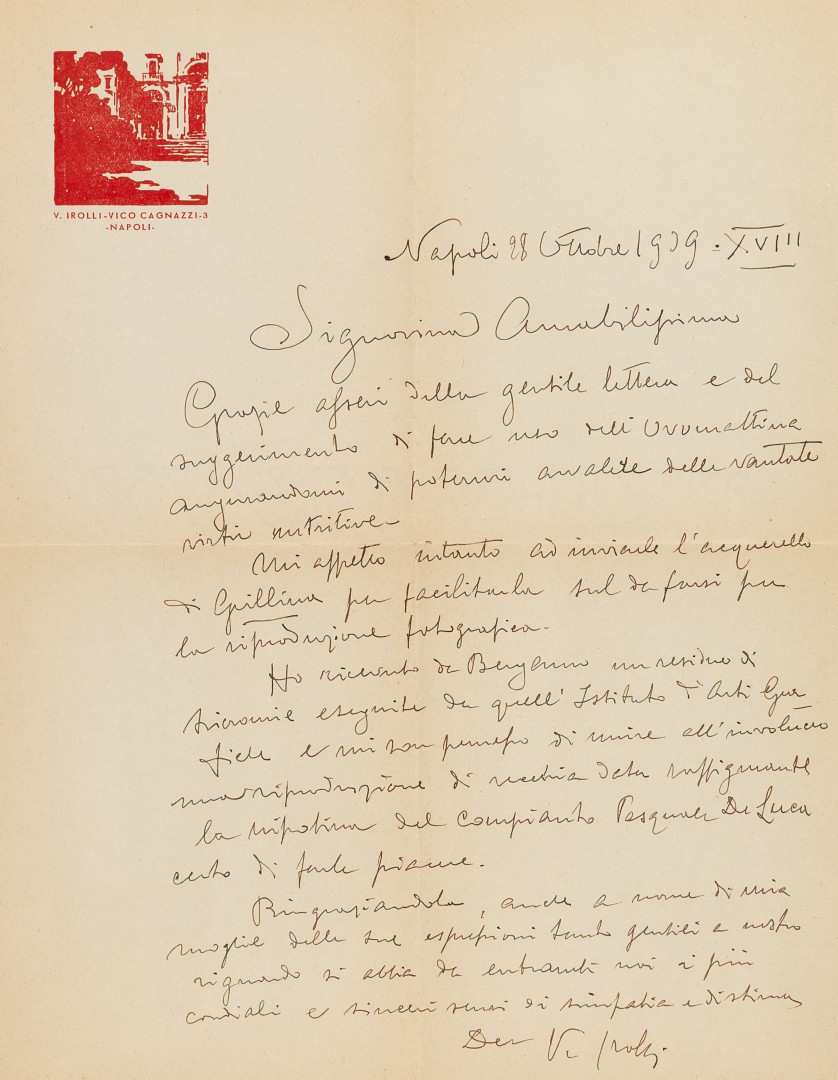 V. IROLLI-VICO CAGNAZZI-3
-NAPOLI-
Napoli 28 Ottobre 1939 - XVIII
Signorina Amabilissima
Grazie assai della gentile lettera e del
suggerimento di fare uso dell'Ovomattina
augurandomi di potermi avvalere delle vantate
virtù nutritive -
Mi affretto intanto ad inviarle l'acquerello
di Grillina per facilitarla sul da farsi per
la riproduzione fotografica -
Ho ricevuto da Bergamo un residuo di
tricromie eseguite da quell'Istituto d'Arti Gra
fiche e mi son permesso di unire all'involucro
una riproduzione di vecchia data raffigurante
la nipotina del compianto Pasquale De Luca
certo di farle piacere.
Ringraziandola, anche a nome di mia
moglie delle sue espressioni tanto gentili a nostro
riguardo si abbia da entrambi noi i più
cordiali e sinceri sensi di simpatia e di stima
V. Irolli